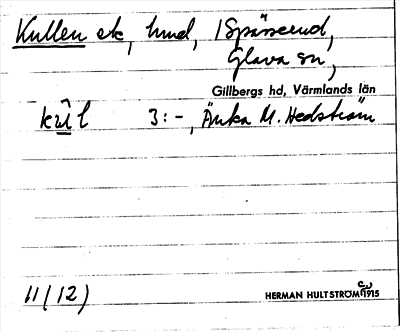 Kullen etc, hmd, /Spässerud,
Glava sn,
Gillbergs hd, Värmlands län
3:-, Änka M. Hedström
11(12)
HERMAN HULTSTRÖM 1915